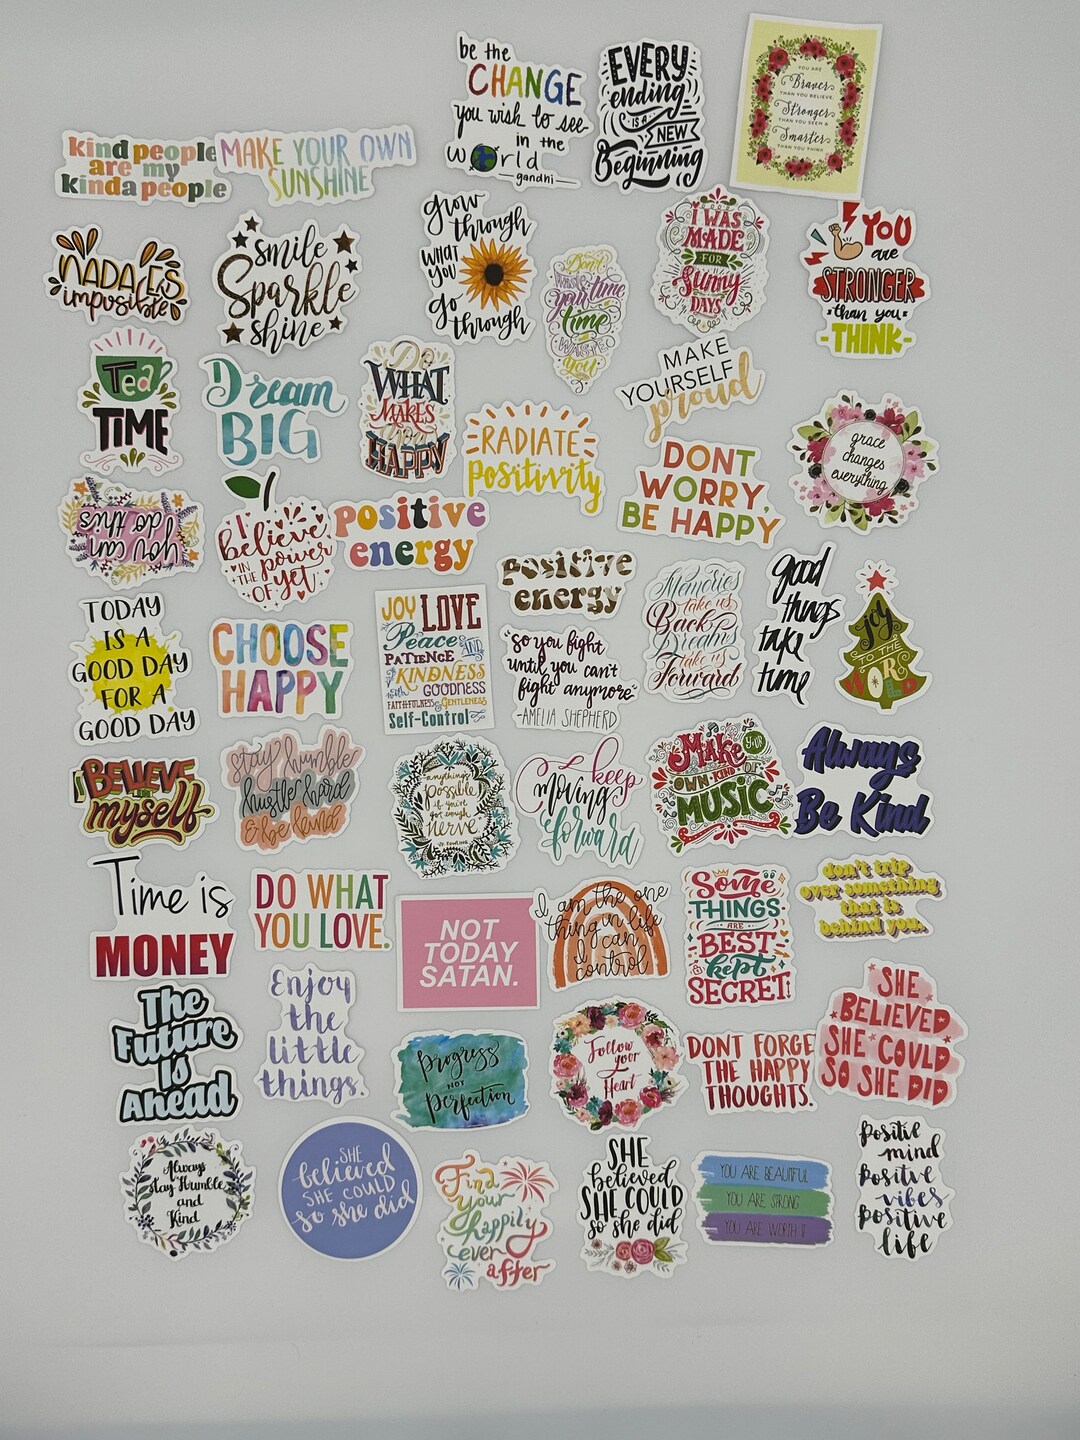 be the
CHANGE
you wish to see
in the
world
gandhi
EVERY
ending
IS A
NEW
Beginning
YOU ARE
Braver
THAN YOU BELIEVE
Stronger
THAN YOU SEEM &
Smarter
THAN YOU THINK
kind people
are my
kinda people
MAKE YOUR OWN
SUNSHINE
NADA ES
imposible
smile
Sparkle
shine
grow
through
WHAT
YOU
go
through
Don't
waste
your time
or
time
will
WASTE
you
I WAS
MADE
FOR
Sunny
DAYS
YOU
are
STRONGER
than you
THINK
Tea
TIME
Dream
BIG
Do
WHAT
MAKES
you
HAPPY
RADIATE
positivity
MAKE
YOURSELF
proud
DONT
WORRY,
BE HAPPY
grace
changes
everything
you can
do this
I
believe
IN THE power
OF yet
positive
energy
positive
energy
Memories
take us
Back
Dreams
take us
Forward
good
things
take
time
JOY
TO THE
WORLD
TODAY
IS A
GOOD DAY
FOR A
GOOD DAY
CHOOSE
HAPPY
JOY LOVE
Peace AND
PATIENCE
KINDNESS
with GOODNESS
FAITHFULNESS & GENTLENESS
Self-Control
"so you fight
until you can't
fight anymore"
-AMELIA SHEPHERD
I BELIEVE
IN
myself
stay humble
hustle hard
& be kind
anything's
possible
if you've
got enough
nerve
keep
moving
forward
Make YOUR
OWN KIND
OF
MUSIC
Always
Be Kind
Time is
MONEY
DO WHAT
YOU LOVE.
NOT
TODAY
SATAN.
I am the one
thing in life
I can
control
Some
THINGS
ARE
BEST
kept
SECRET!
don't trip
over something
that is
behind you.
The
Future
Is
Ahead
Enjoy
the
little
things.
Progress
NOT
Perfection
Follow
your
Heart
DONT FORGET
THE HAPPY
THOUGHTS.
SHE
BELIEVED
SHE COULD
SO SHE DID
Always
Stay Humble
and
Kind
SHE
believed
SHE COULD
so she did
Find
your
happily
ever
after
SHE
believed
SHE COULD
so she did
YOU ARE BEAUTIFUL
YOU ARE STRONG
YOU ARE WORTH IT
positive
mind
positive
vibes
positive
life